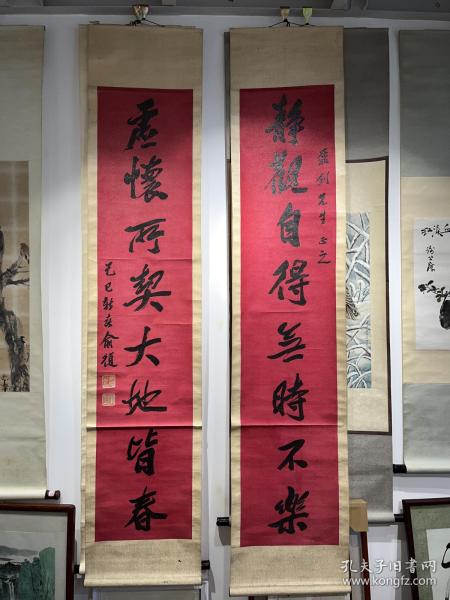 靜觀自得無時不樂
先生正之
虛懷所契大地皆春
己巳新春俞復
孔夫子旧书网
www.kongfz.com